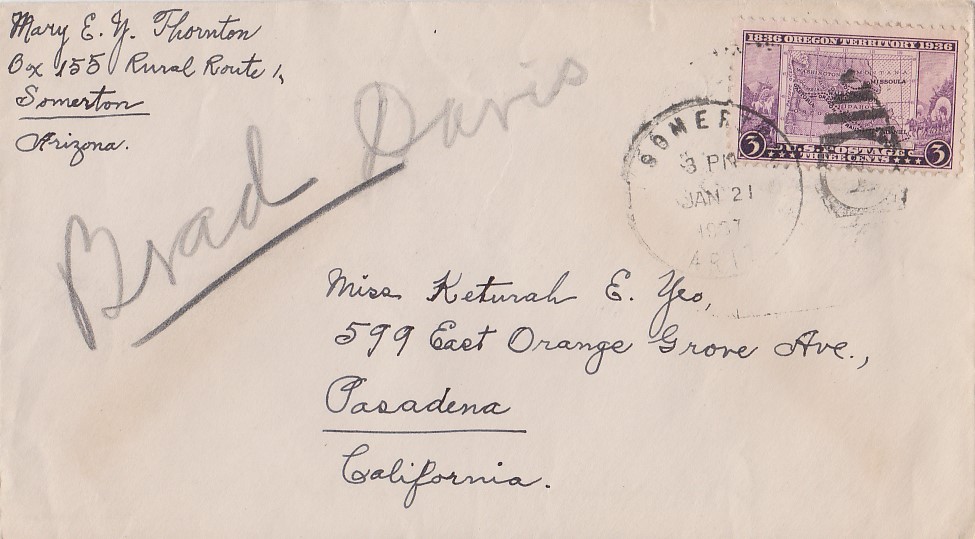 Mary E. Y. Thornton
Box 155 Rural Route 1,
Somerton
Arizona.
Brad Davis
1836 OREGON TERRITORY 1936
MONTANA
MISSOULA
IDAHO
3 U.S. POSTAGE 3
THREE CENTS
SOMERT
3 PM
JAN 21
1937
ARIZ
Miss Keturah E. Yeo,
599 East Orange Grove Ave.,
Pasadena
California.